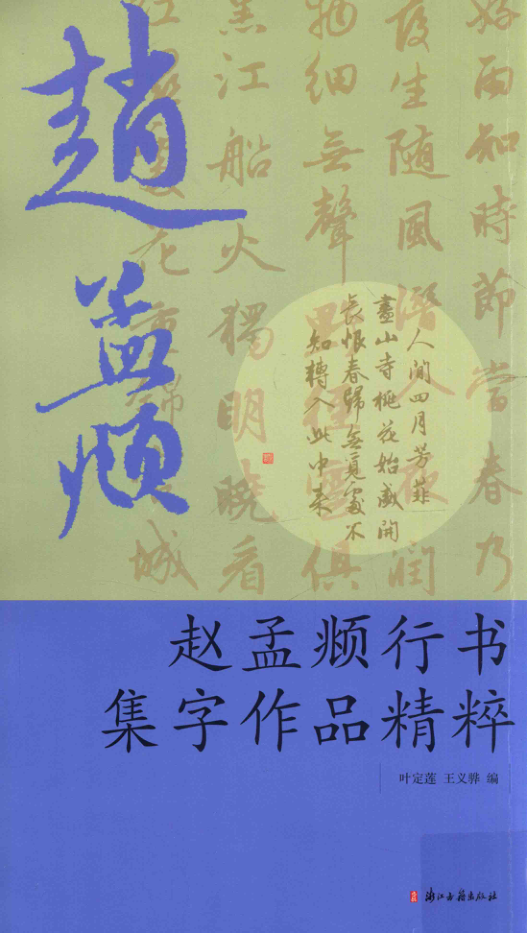 趙
孟
頫
好雨知時節當春乃
發生随風潛入夜潤
物細無聲野徑雲俱
黑江船火獨明曉看
紅濕處花重錦官城
人間四月芳菲
盡山寺桃花始盛開
長恨春歸無覓處不
知轉入此中來
赵孟頫行书
集字作品精粹
叶定莲 王义骅 编
浙江古籍出版社